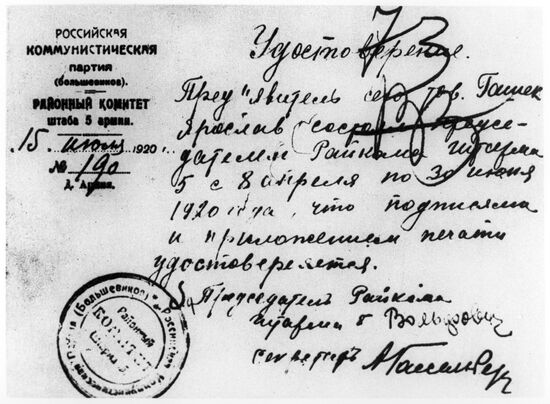 РОССИЙСКАЯ
КОММУНИСТИЧЕСКАЯ
ПАРТИЯ
(большевиков).
РАЙОННЫЙ КОМИТЕТ
штаба 5 армии.
15 июля 1920 г.
№ 190
Д. Армия.
Удостоверение.
Пред"явитель сего тов. Гашек
Ярослав состоял предсе-
дателем Райкома Штарма
5 с 8 апреля по 30 июня
1920 года, что подписями
и приложением печати
удостоверяется.
Председатель Райкома
Штарма 5
секретарь
Российская Коммунистическая Партия (Большевиков)
Районный
КОМИТЕТ